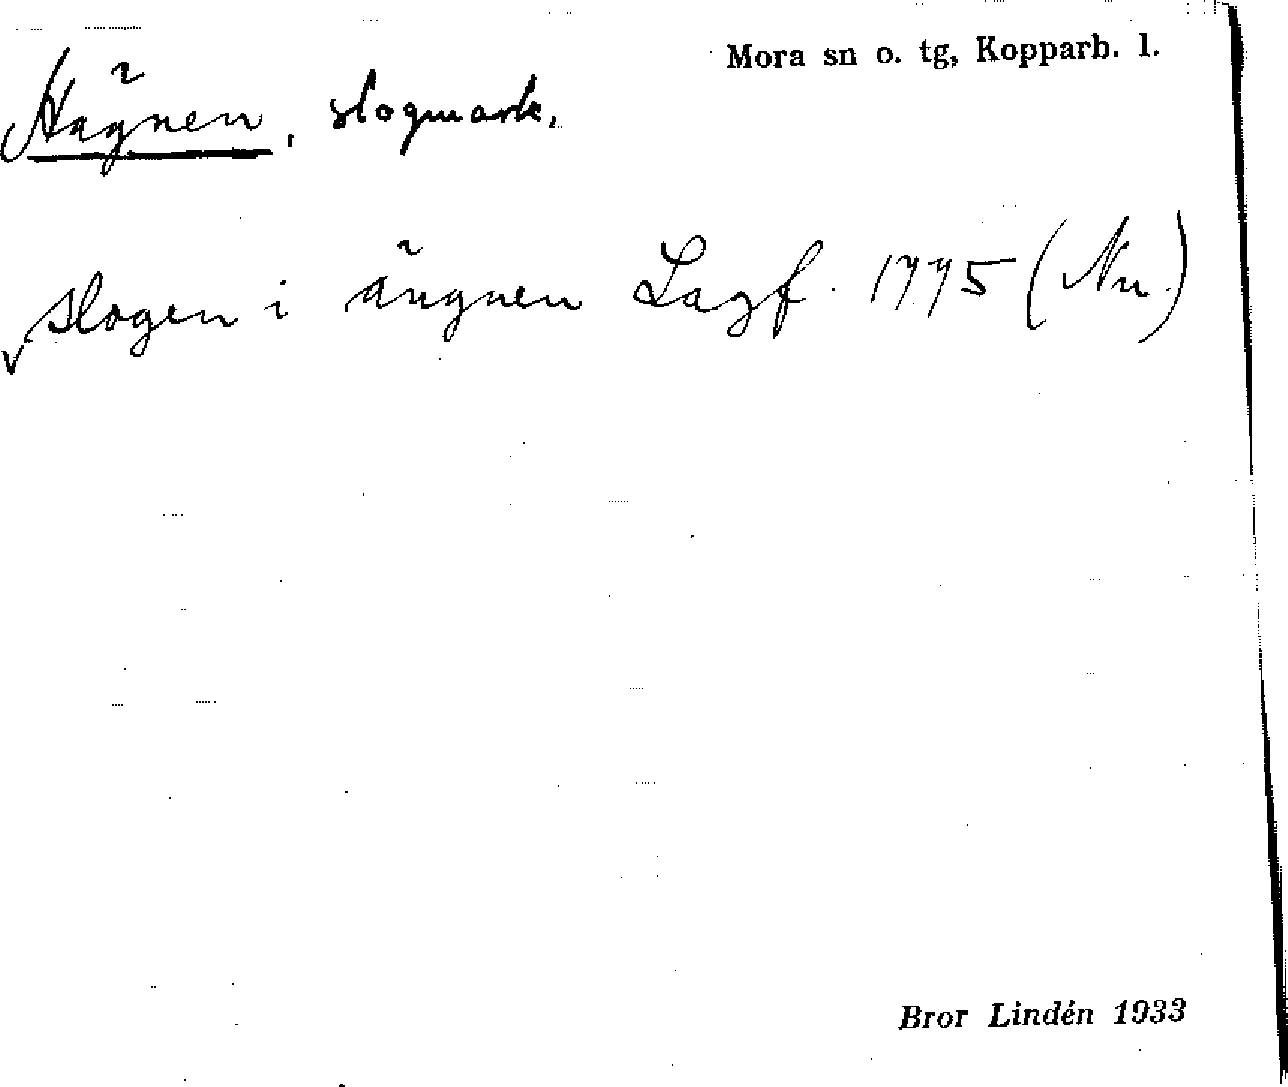 Mora sn o. tg, Kopparb. l.
Hägnen, slogmark.
slogen i ängnen Lagf. 1775 (Nu.)
Bror Lindén 1933